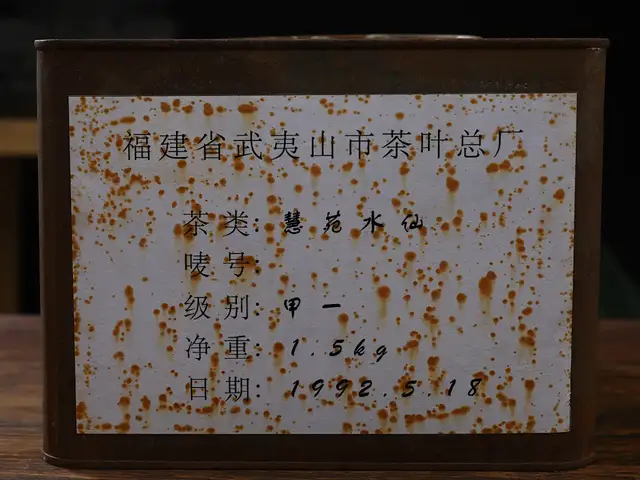 福建省武夷山市茶叶总厂
茶类: 慧苑水仙
唛号:
级别: 甲一
净重: 1.5kg
日期: 1992.5.18